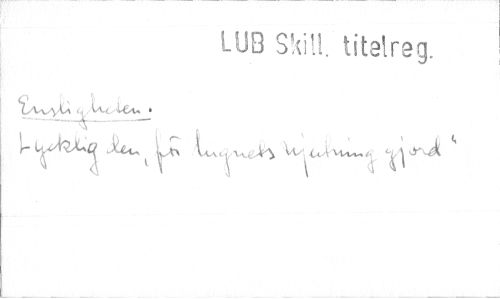 LUB Skill. titelreg.
Ensligheten.
Lycklig den, för lugnets njutning gjord"